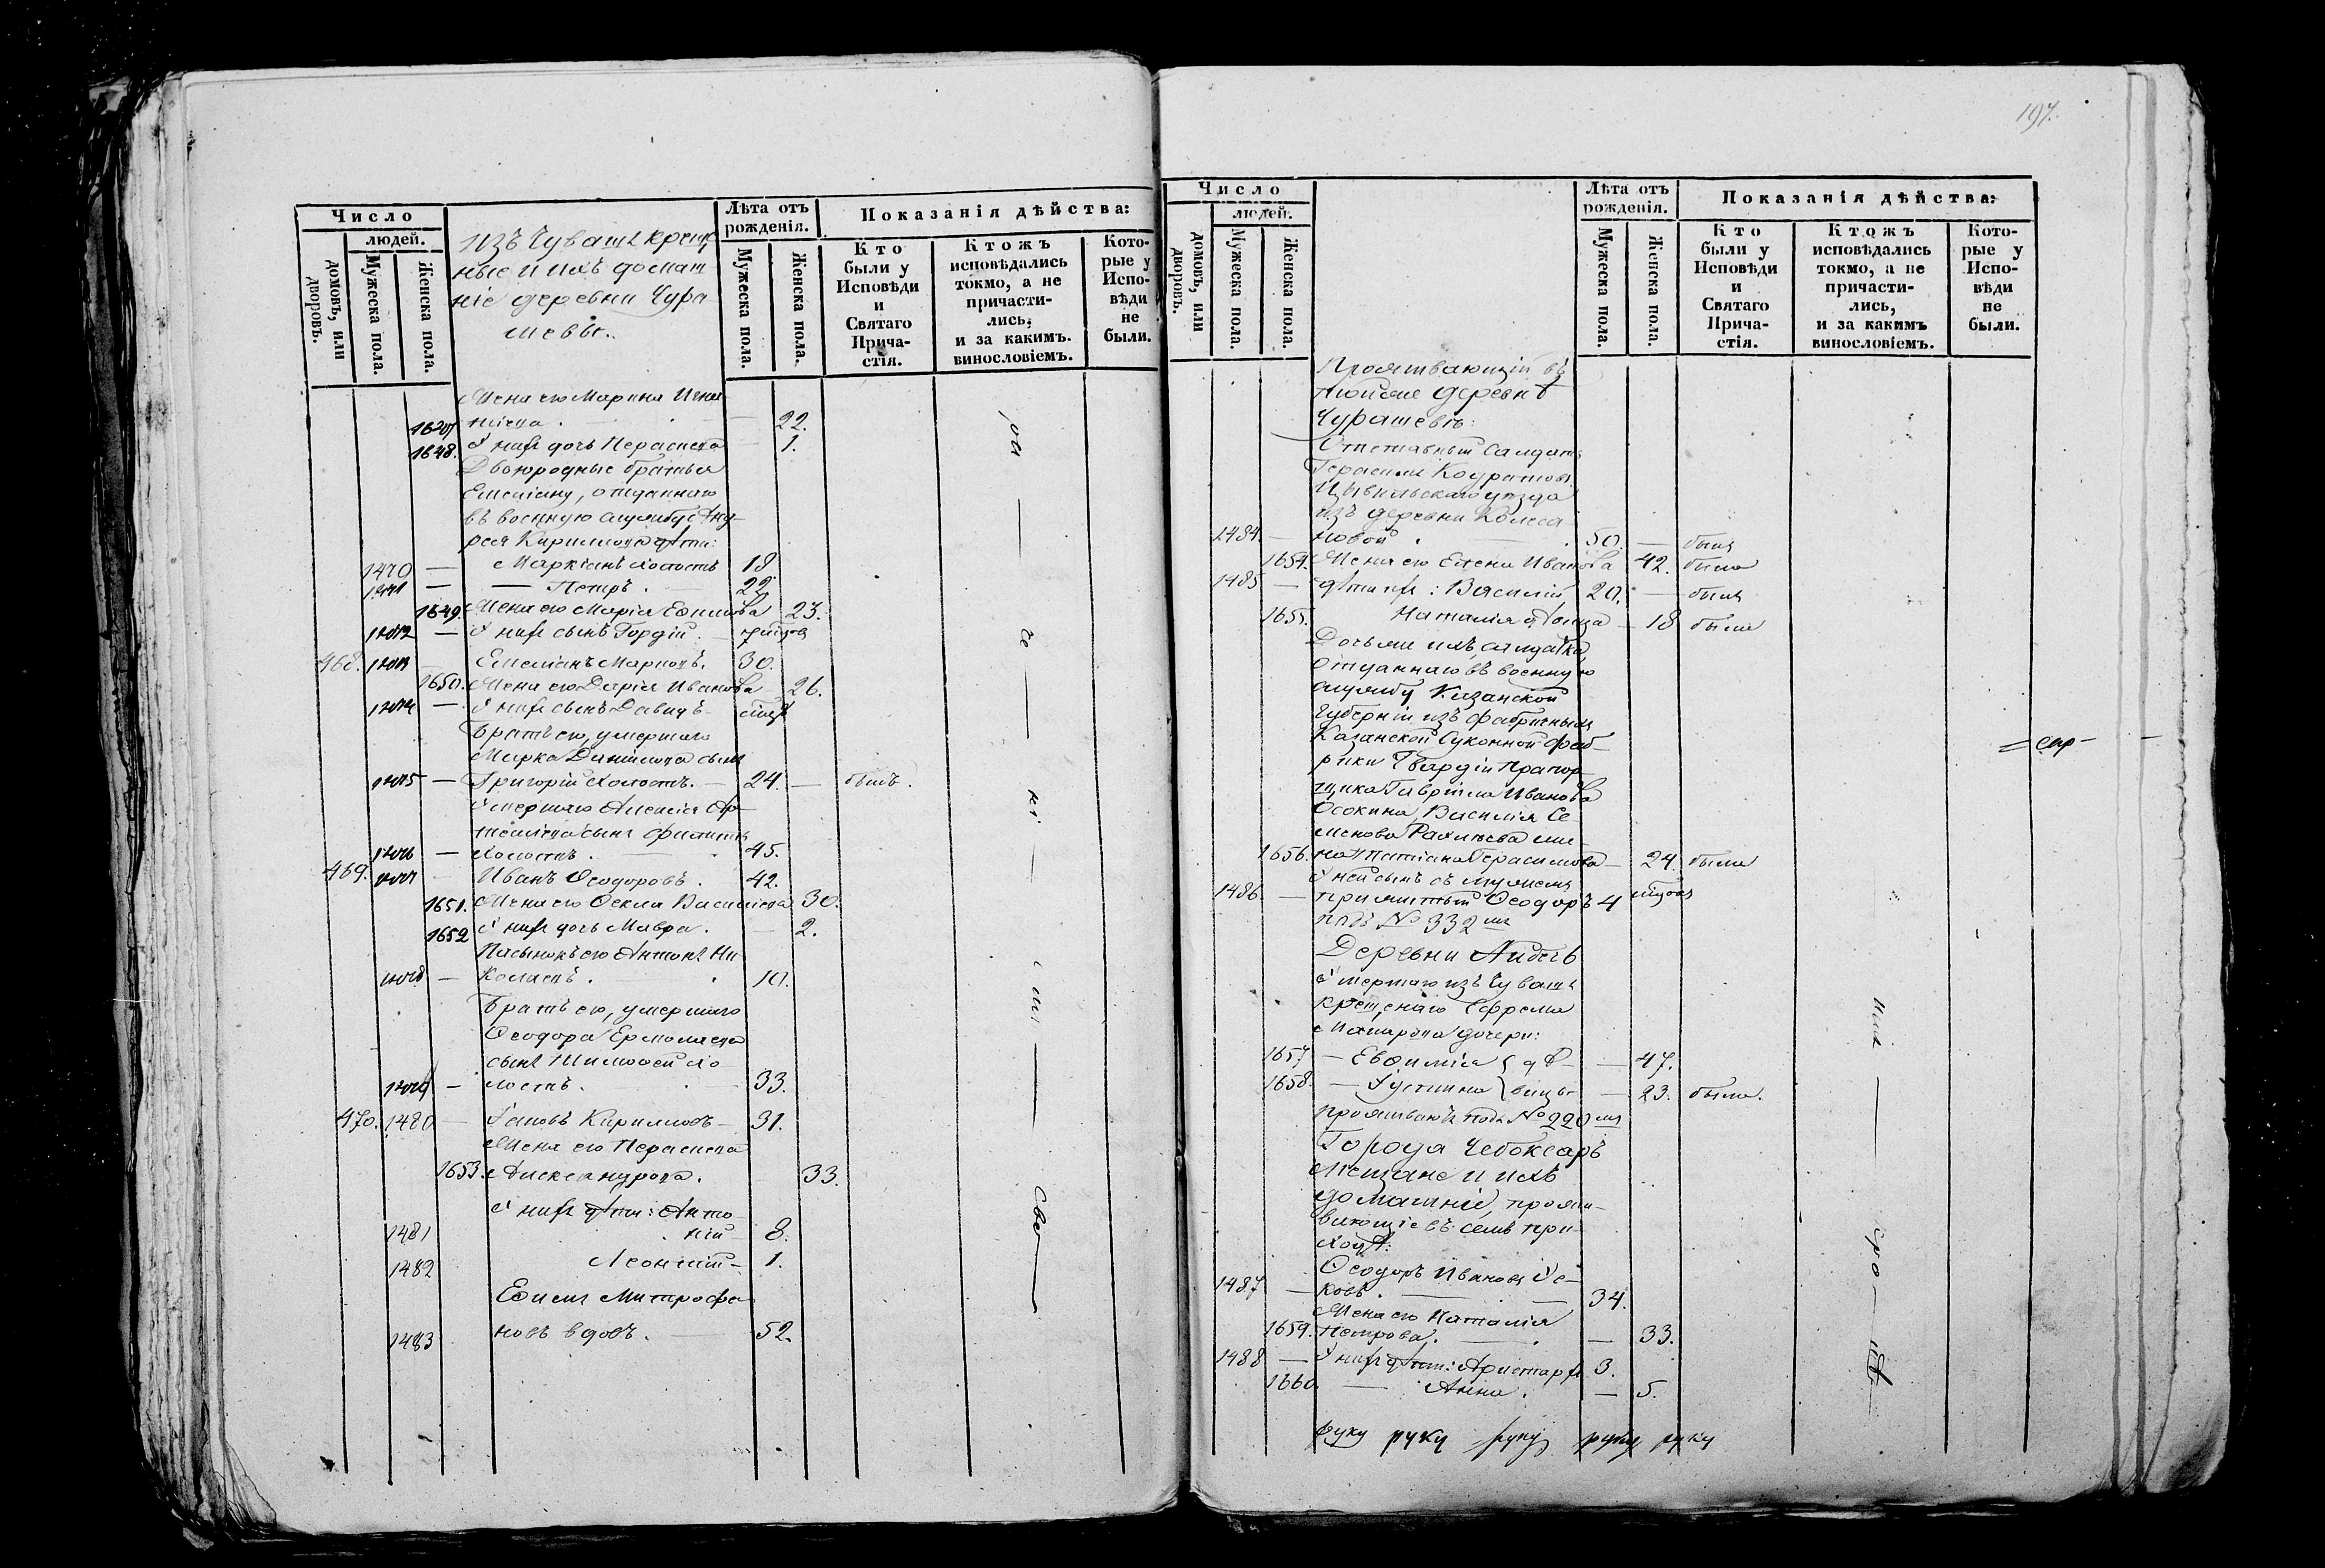 197.
Число
людей.
домовъ, или дворовъ.
Мужеска пола.
Женска пола.
Изъ Чувашъ крещен
ные и ихъ домаш
ніе деревни Чура
шевы.
Лѣта отъ рожденія.
Мужеска пола.
Женска пола.
Показанія дѣйства:
Кто были у Исповѣди и Святаго Прича-стія.
Ктожъ исповѣдались токмо, а не причасти-лись, и за какимъ винословіемъ.
Кото-рые у Испо-вѣди не были.
Жена его Марина Игна
тіева . 22.
1648. У нихъ дочь Параскева 1.
Двоюродные братья
Емеліану, отданнаго
въ военную службу Анд-
рея Кириллова дѣти:
1470 — Маркіанъ холостъ 18
1471 — Петръ . 22.
1649. Жена его Марія Ефимова 23.
1472 — У нихъ сынъ Гордій
468. 1473 Емеліанъ Марковъ. 30.
1650. Жена его Дарія Иванова 26.
1474 — У нихъ сынъ Давидъ
Братъ его, умершаго
Марка Данилова сынъ
1475 — Григорій холостъ. — 24. — былъ.
Умершаго Алексія Ар-
сынъ Филиппъ
1476 — холостъ . 45.
469. 1477 Иванъ Ѳеодоровъ . 42.
1651. Жена его Ѳекла Василіева 30.
1652 У нихъ дочь Мавра . — 2.
Пасынокъ его Антонъ Ни
1478 — колаевъ . 10.
Братъ его, умершаго
Ѳеодора Ермолаева
сынъ Тимоѳей хо
1479 — лостъ . 33.
470. 1480 — Іаковъ Кирилловъ — 31.
Жена его Параскева
1653. Александрова. 33.
У нихъ дѣти: Анто
1481 ній 8.
1482 Леонтій — 1.
Ефимъ Митрофа
1483 новъ вдовъ. — 52.
Число
людей.
домовъ, или дворовъ.
Мужеска пола.
Женска пола.
Лѣта отъ рожденія.
Мужеска пола.
Женска пола.
Показанія дѣйства:
Кто были у Исповѣди и Святаго Прича-стія.
Ктожъ исповѣдались токмо, а не причасти-лись, и за какимъ винословіемъ.
Кото-рые у Испо-вѣди не были.
Проживающій въ
тойже деревнѣ
Чурашевѣ:
Отставный Салдатъ
Герасимъ Кондратовъ
Цывильскаго уѣзда
изъ деревни
1484. — новой . 50. — былъ
1654. Жена его Елена Иванова 42. была
1485 — дѣти ихъ: Василій 20. — былъ
1655. Наталія дѣвица — 18 была
Дочь же ихъ, салдатка,
отданнаго въ военную
службу Казанской
Губерніи изъ фабричныхъ
Казанской Суконной фаб-
рики Гвардіи Прапор-
щика Гавріила Иванова
Осокина, Василія Се-
менова же-
1656. на Татіана Герасимова — 24. была
У ней сынъ съ мужемъ
1486. — прижитый Ѳеодоръ 4
подъ № 332 мъ
Деревни
Умершаго изъ Чувашъ
крещенаго Ефрема
Макарова дочери:
1657 — Евфимія } дѣ- — 47.
1658. — Іустина } вицы — 23. была.
проживаютъ подъ № 220 мъ
Города Чебоксаръ
Мещане и ихъ
домашніе, прожи-
вающіе въ семъ при-
ходѣ:
Ѳеодоръ Ивановъ
1487 — ковъ . — 34.
Жена его Наталія
1659. Петрова. — 33.
1488 — У нихъ дѣти: Аристархъ 3.
1660. — Анна . — 5.
руку руку руку руку руку